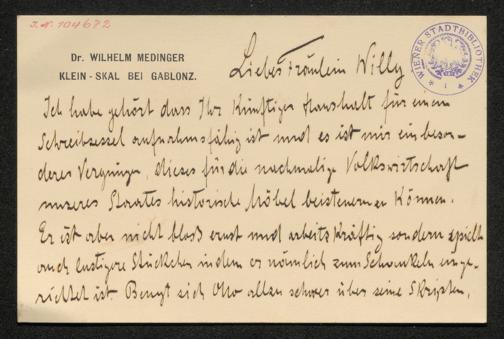 J.N. 104672
Dr. WILHELM MEDINGER
KLEIN-SKAL BEI GABLONZ.
WIENER STADTBIBLIOTHEK
Liebes Fräulein Willy
Ich habe gehört dass Ihr künftiger Haushalt für einen
Schreibsessel aufnahmsfähig ist und es ist mir ein beson-
deres Vergnügen, dieses für die nachmalige Volkswirtschaft
unseres Staates historische Möbel beisteuern zu können.
Er ist aber nicht bloß ernst und arbeitskräftig sondern spielt
auch lustigere Stückchen indem er nämlich zum Schaukeln einge-
richtet ist. Beugt sich Otto allzu schwer über seine Skripten,